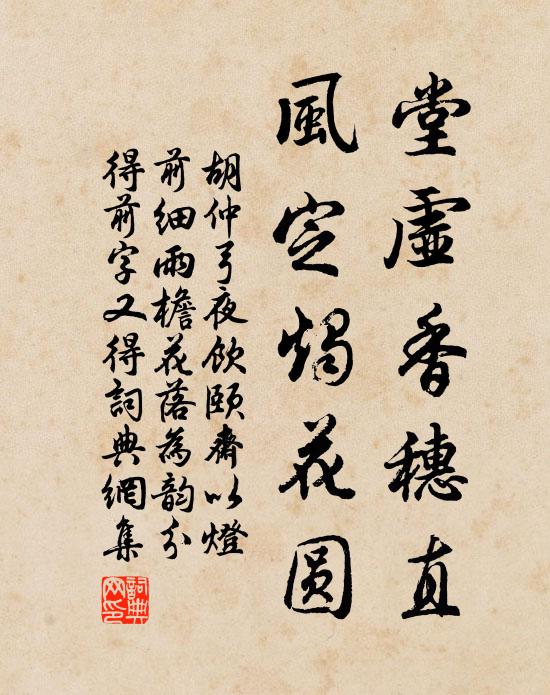 堂虛香穗直
風定燭花圓
胡仲弓夜飲頤齋以燈
前細雨檐花落為韵分
得前字又得詞典網集
詞典網印